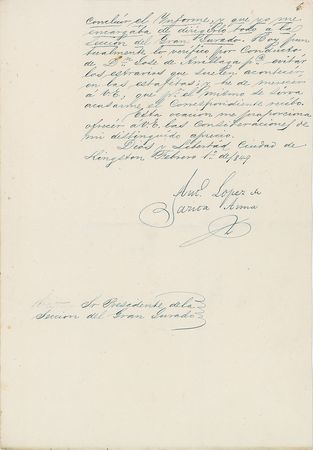 6
concluir el Informe, y que yo me
encargaba de dirigirlo todo a la
seccion del Gran Jurado. Hoy pun
tualmente lo verifico por conducto
de Dn. José de Arrillaga pa. evitar
los estravios que suelen acontecer
en las estafetas; y he de merecer
á V.E. que pr. el mismo se sirva
acusarme el correspondiente recibo.
Esta ocacion me proporciona
ofrecer á V.E. las consideraciones de
mi distinguido aprecio.
Dios y Libertad, Ciudad de
Kingston Febrero 1o. de 1849
Anto. Lopez de
Santa Anna
Sr Presidente de la
Seccion del Gran Jurado